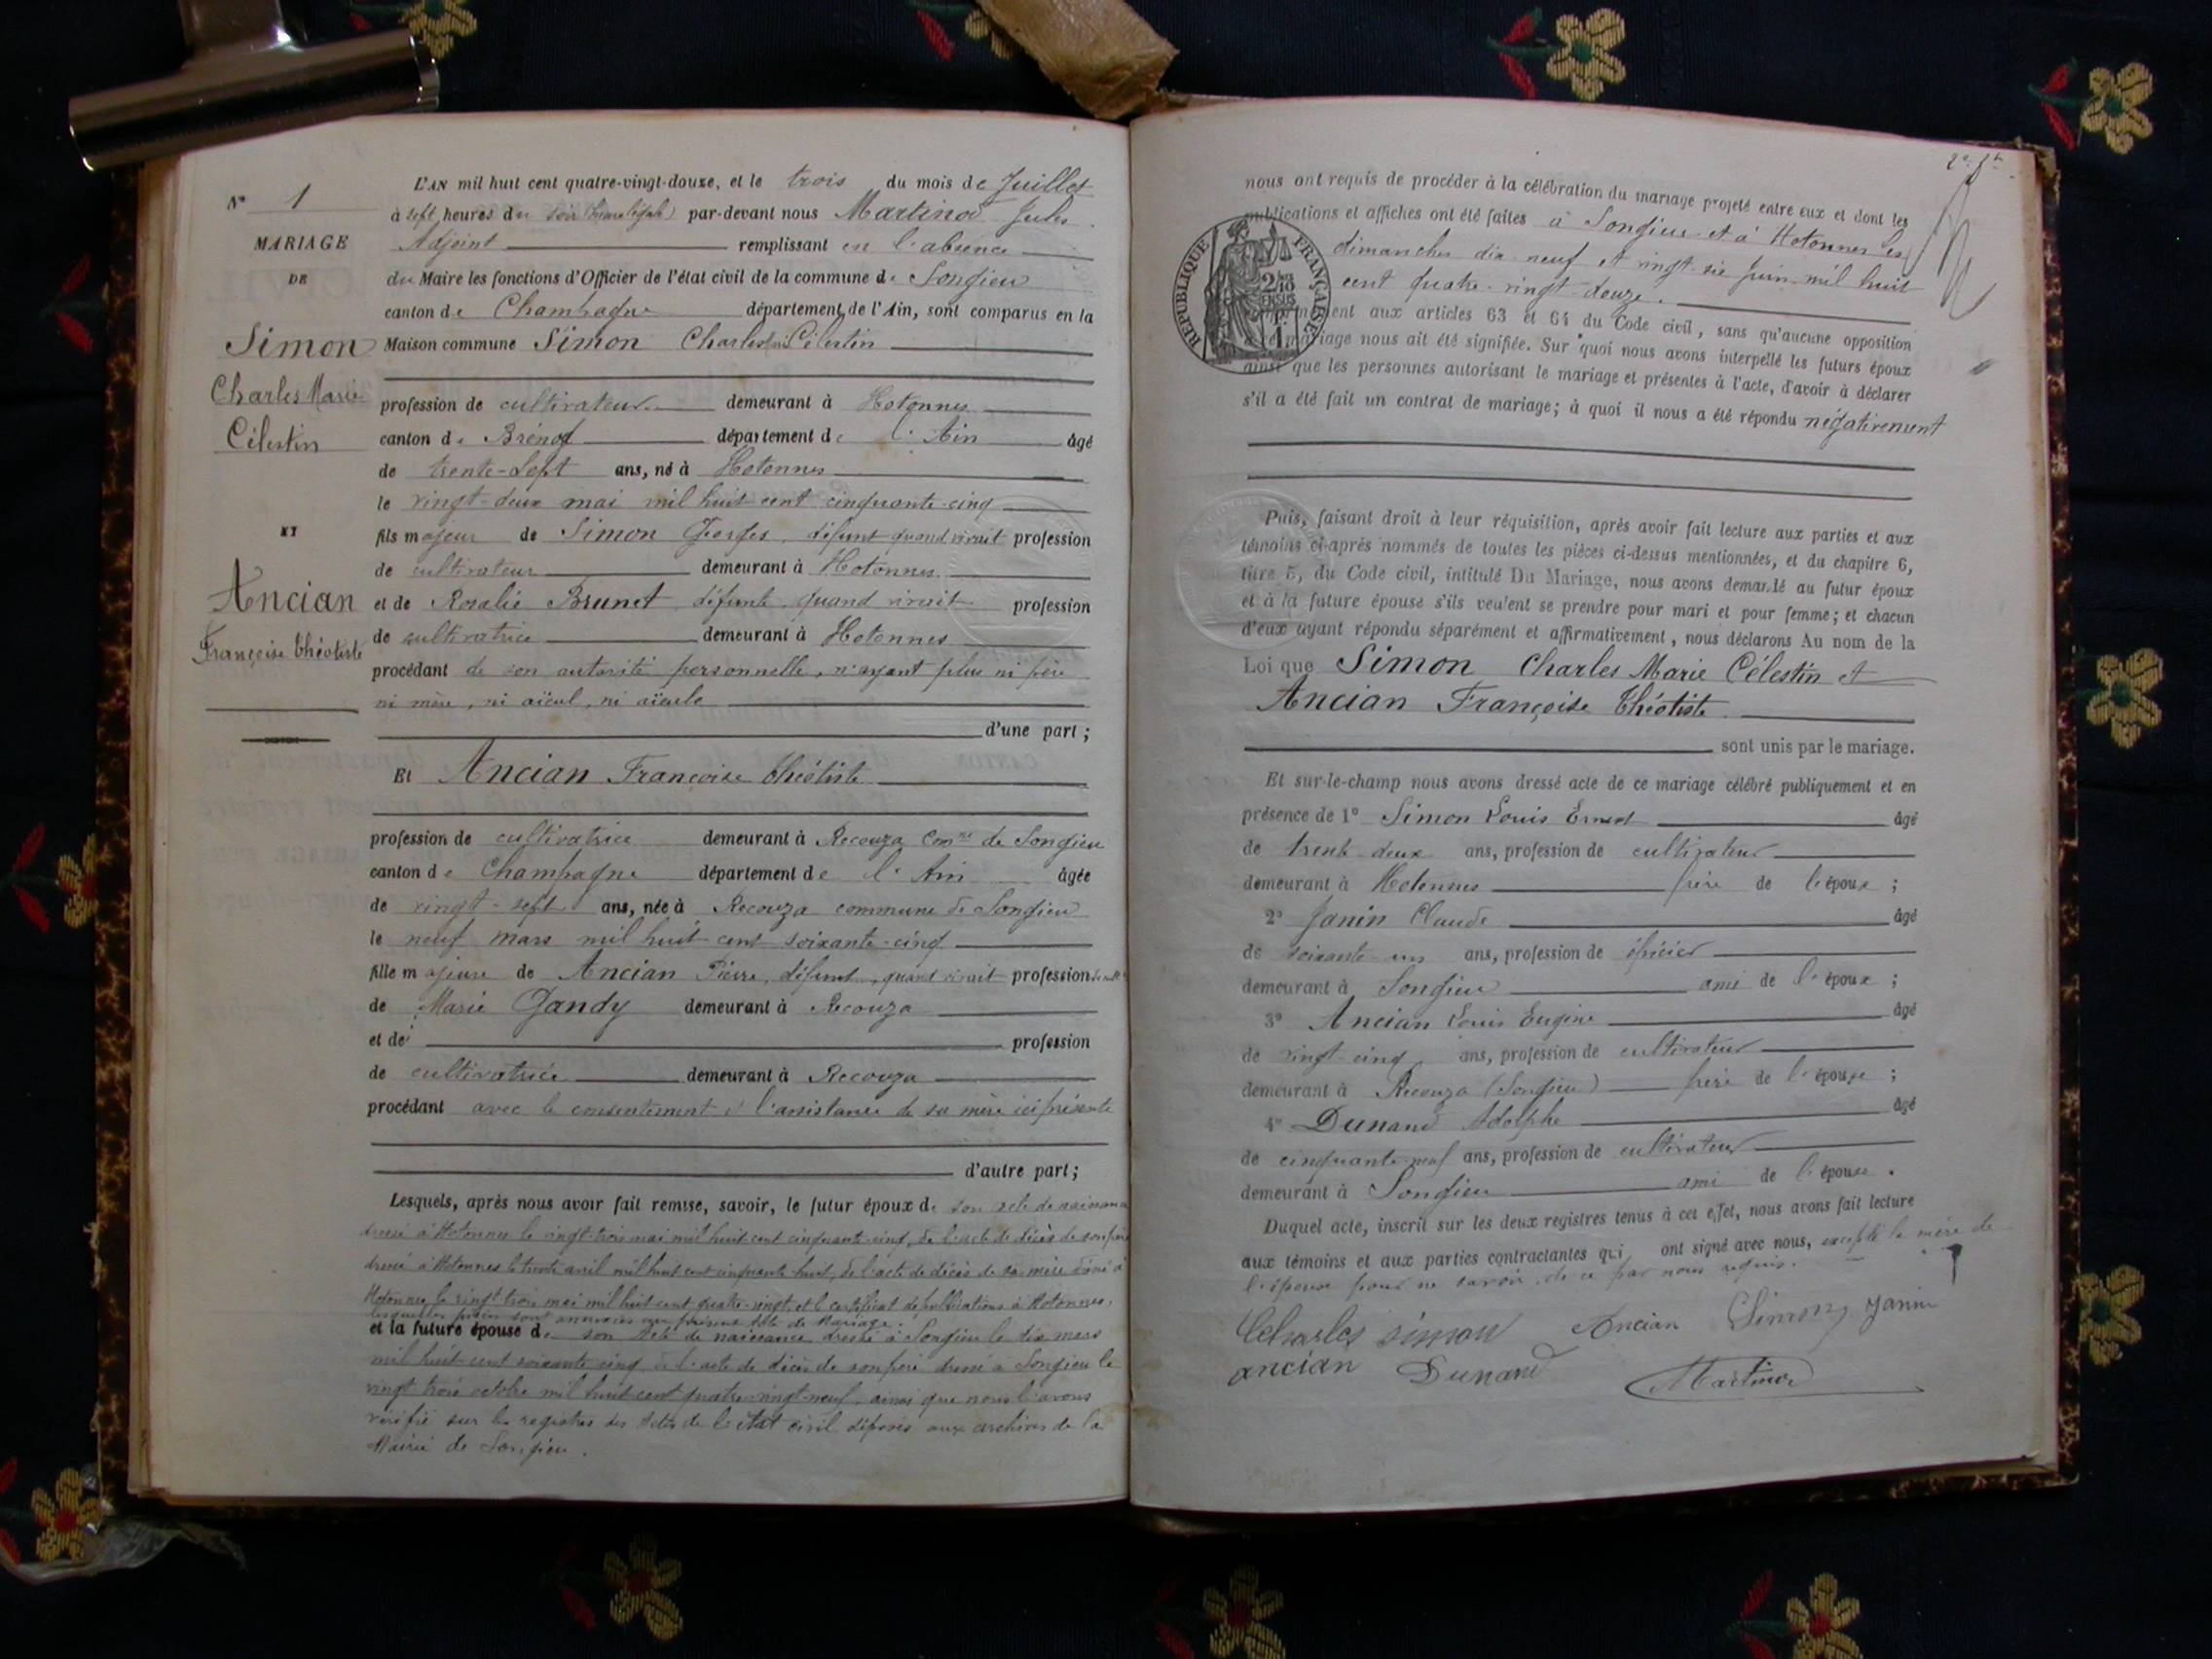 N° 1
MARIAGE
DE
Simon
Charles Marie
Célestin
ET
Ancian
Françoise Théotiste
L'AN mil huit cent quatre-vingt-douze, et le trois du mois de Juillet
à sept heures du soir (heure légale) par-devant nous Martinod Jules
Adjoint remplissant en l'absence
du Maire les fonctions d'Officier de l'état civil de la commune de Songieu
canton de Champagne département de l'Ain, sont comparus en la
Maison commune Simon Charles Marie Célestin
profession de cultivateur demeurant à Hotonnes
canton de Brénod département de l'Ain âgé
de trente-sept ans, né à Hotonnes
le vingt-deux mai mil huit cent cinquante-cinq
fils majeur de Simon Georges, défunt quand vivait profession
de cultivateur demeurant à Hotonnes
et de Rosalie Brunet défunte, quand vivait profession
de cultivatrice demeurant à Hotonnes
procédant de son autorité personnelle, n'ayant plus ni père
ni mère, ni aïeul, ni aïeule
d'une part ;
Et Ancian Françoise Théotiste
profession de cultivatrice demeurant à Recouza Comne de Songieu
canton de Champagne département de l'Ain âgée
de vingt-sept ans, née à Recouza commune de Songieu
le neuf mars mil huit cent soixante-cinq
fille majeure de Ancian Pierre, défunt, quand vivait profession
de Marie Gandy demeurant à Recouza
et de profession
de cultivatrice demeurant à Recouza
procédant avec le consentement et l'assistance de sa mère ici présente
d'autre part ;
Lesquels, après nous avoir fait remise, savoir, le futur époux de son acte de naissance
dressé à Hotonnes le vingt-trois mai mil huit cent cinquante-cinq, de l'acte de décès de son père
dressé à Hotonnes le trente avril mil huit cent cinquante huit, de l'acte de décès de sa mère dressé à
Hotonnes le vingt trois mai mil huit cent quatre-vingt, et le certificat de publications à Hotonnes,
lesquelles pièces sont annexées au présent acte de Mariage.
et la future épouse de son acte de naissance dressé à Songieu le dix mars
mil huit cent soixante cinq, de l'acte de décès de son père dressé à Songieu le
vingt trois octobre mil huit cent quatre-vingt-neuf, ainsi que nous l'avons
vérifié sur les registres des actes de l'état civil déposés aux archives de la
Mairie de Songieu.
nous ont requis de procéder à la célébration du mariage projeté entre eux et dont les
publications et affiches ont été faites à Songieu et à Hotonnes les
dimanches dix-neuf et vingt-six Juin mil huit
cent quatre-vingt-douze.
RÉPUBLIQUE FRANÇAISE
aux articles 63 et 64 du Code civil, sans qu'aucune opposition
mariage nous ait été signifiée. Sur quoi nous avons interpellé les futurs époux
ainsi que les personnes autorisant le mariage et présentes à l'acte, d'avoir à déclarer
s'il a été fait un contrat de mariage; à quoi il nous a été répondu négativement
Puis, faisant droit à leur réquisition, après avoir fait lecture aux parties et aux
témoins ci-après nommés de toutes les pièces ci-dessus mentionnées, et du chapitre 6,
titre 5, du Code civil, intitulé Du Mariage, nous avons demandé au futur époux
et à la future épouse s'ils veulent se prendre pour mari et pour femme; et chacun
d'eux ayant répondu séparément et affirmativement, nous déclarons Au nom de la
Loi que Simon Charles Marie Célestin et
Ancian Françoise Théotiste
sont unis par le mariage.
Et sur-le-champ nous avons dressé acte de ce mariage célébré publiquement et en
présence de 1° Simon Louis Ernest âgé
de trente-deux ans, profession de cultivateur
demeurant à Hotonnes frère de l'époux ;
2° Janin Claude âgé
de soixante-un ans, profession de épicier
demeurant à Songieu ami de l'époux ;
3° Ancian Louis Eugène âgé
de vingt-cinq ans, profession de cultivateur
demeurant à Recouza (Songieu) frère de l'épouse ;
4° Dunand Adolphe âgé
de cinquante-neuf ans, profession de cultivateur
demeurant à Songieu ami de l'épouse.
Duquel acte, inscrit sur les deux registres tenus à cet effet, nous avons fait lecture
aux témoins et aux parties contractantes qui ont signé avec nous, excepté la mère de
l'épouse pour ne savoir, de ce par nous requis.
Charles simon Ancian Simon Janin
ancian Dunand Martinod